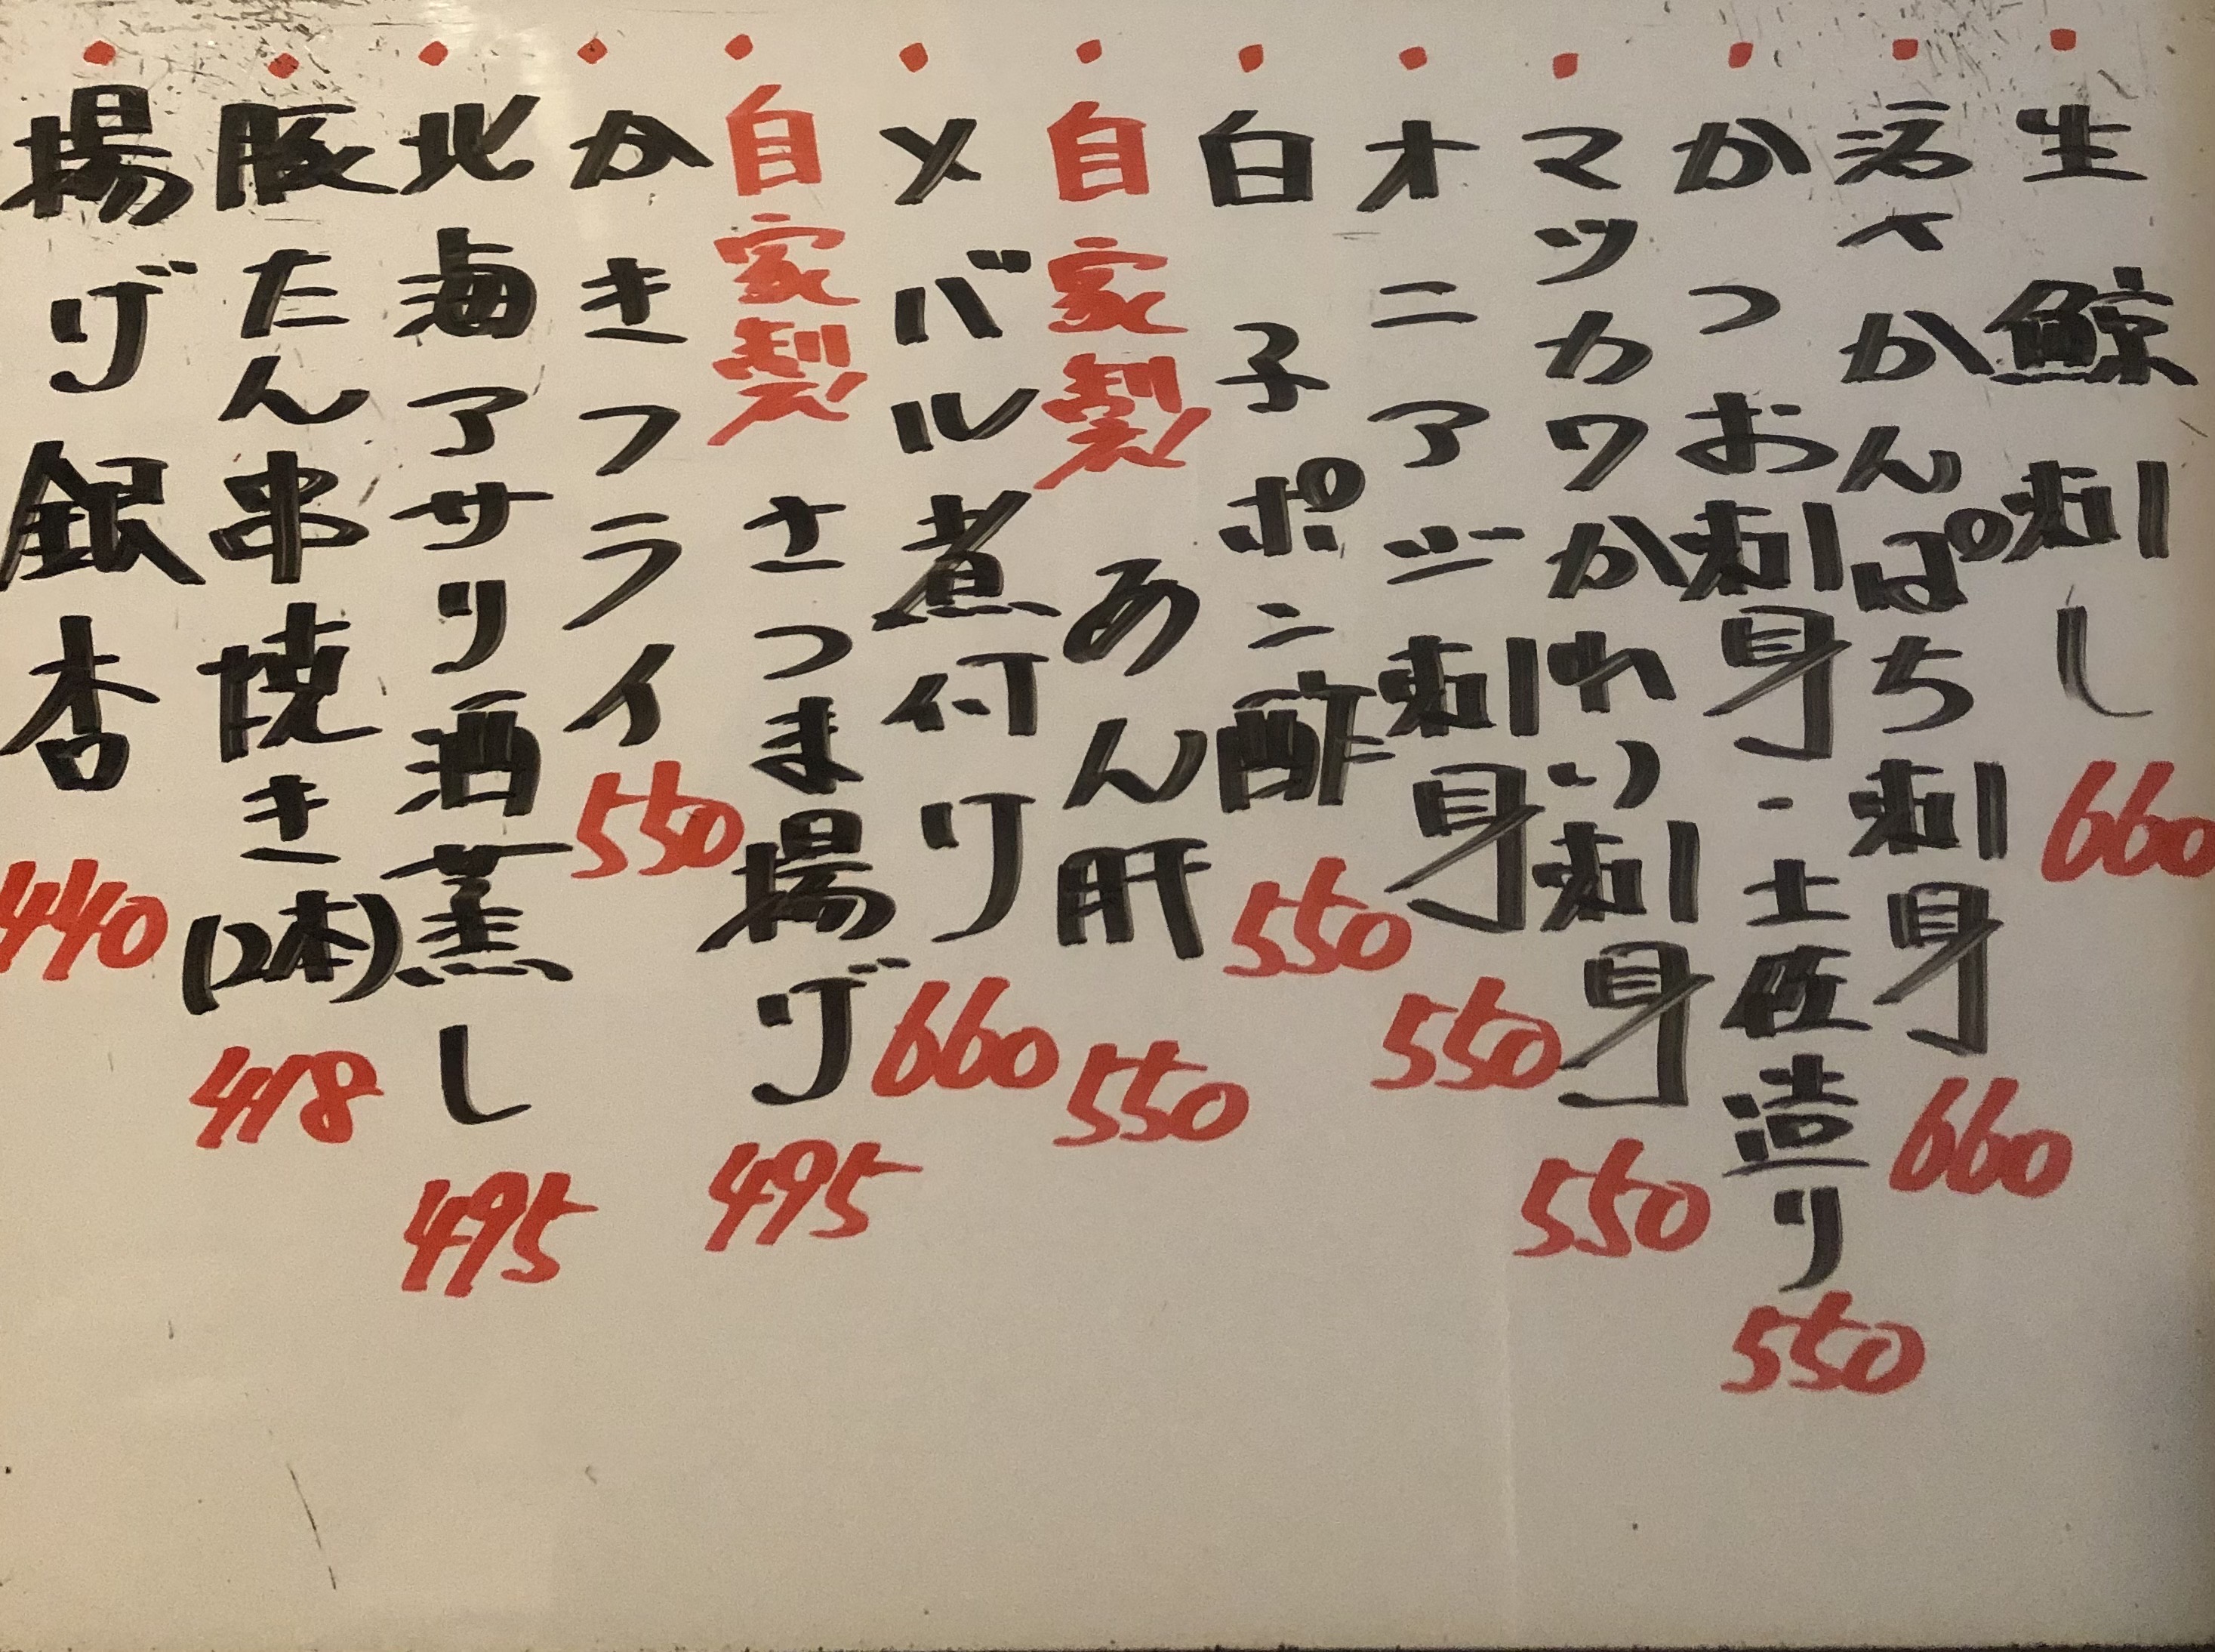 ・生鯨刺し 660
・活〆かんぱち刺身 660
・かつお刺身・土佐造り 550
・マツカワかれい刺身 550
・オニアジ刺身 550
・白子ポン酢 550
・自家製 あん肝 550
・メバル煮付け 660
・自家製 さつま揚げ 495
・かきフライ 550
・北海アサリ酒蒸し 495
・豚たん串焼き(2本) 418
・揚げ銀杏 440